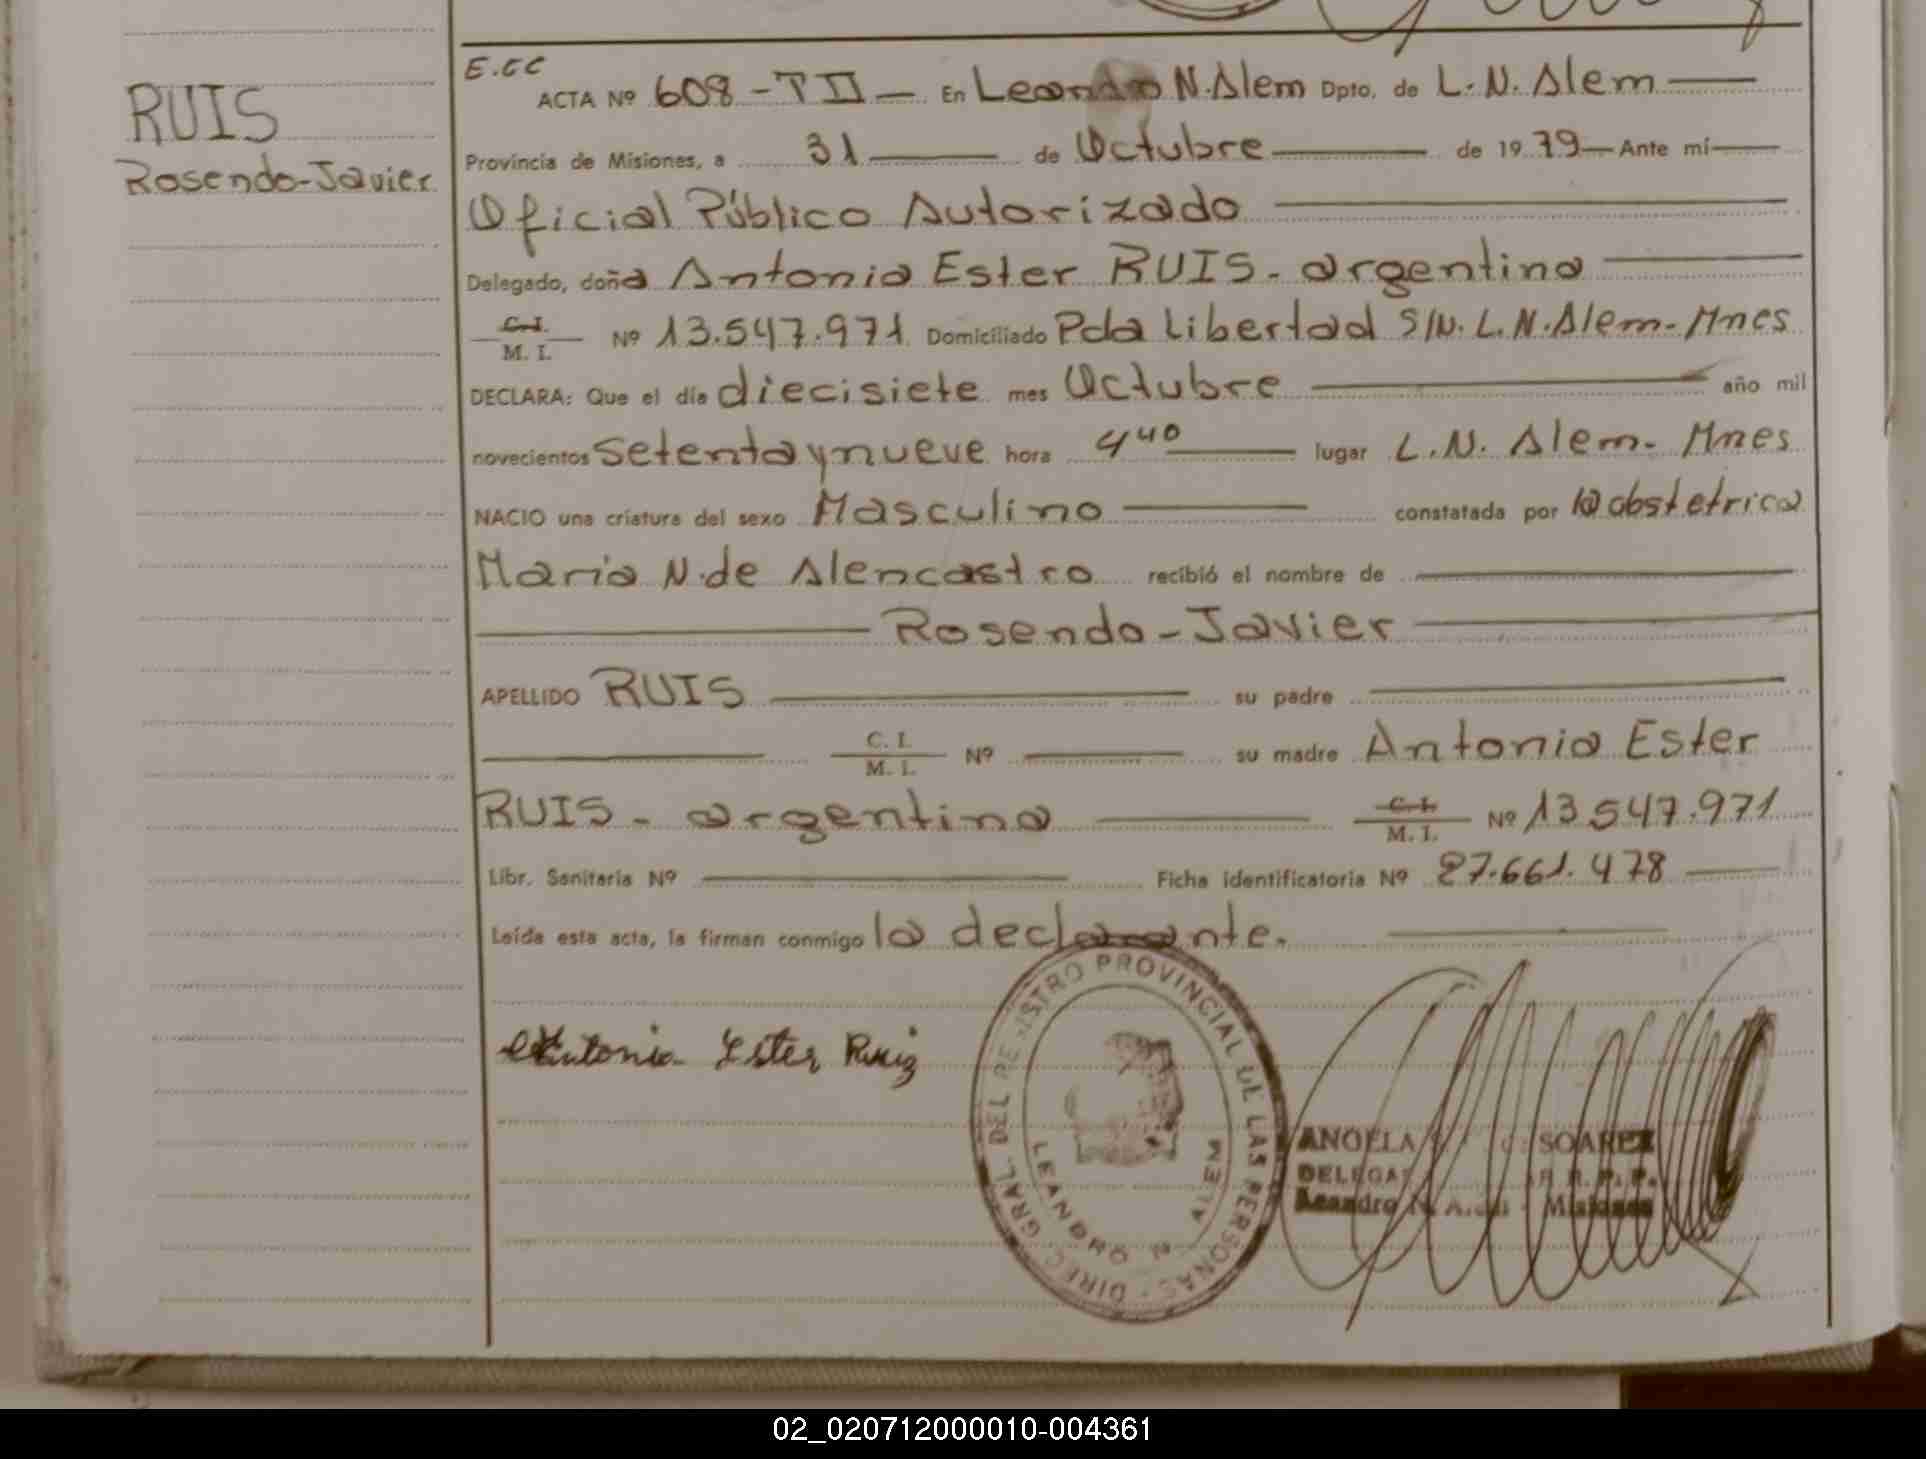 RUIS
Rosendo-Javier
E.CC
ACTA Nº 608-TII- En Leandro N. Alem Dpto. de L. N. Alem
Provincia de Misiones, a 31 de Octubre de 1979 Ante mí
Oficial Público Autorizado
Delegado, doña Antonia Ester RUIS- argentina
C. I. M. I. Nº 13.547.971 Domiciliado Pda Libertad S/N. L. N. Alem- Mnes
DECLARA: Que el día diecisiete mes Octubre año mil
novecientos setenta y nueve hora 4 40 lugar L. N. Alem- Mnes
NACIO una criatura del sexo Masculino constatada por la obstetrica
Maria N. de Alencastro recibió el nombre de
Rosendo-Javier
APELLIDO RUIS su padre
C. I. M. I. Nº su madre Antonia Ester
RUIS- argentina C. I. M. I. Nº 13.547.971
Libr. Sanitaria Nº Ficha identificatoria Nº 27.661.478
Leída esta acta, la firman conmigo la declarante.
Antonia Ester Ruiz
DIREC. GRAL. DEL REGISTRO PROVINCIAL DE LAS PERSONAS
LEANDRO N. ALEM
ANGELA SOAREZ
R. P. P.
Leandro N. Alem - Misiones
02_020712000010-004361